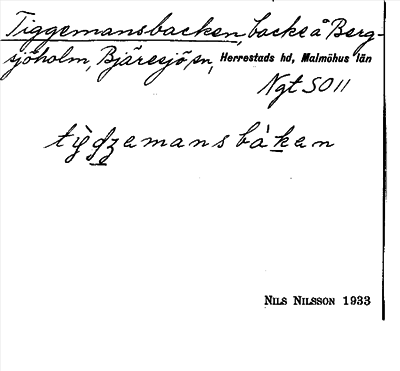 Tiggemansbacken, backe å Berg-
sjöholm, Bjäresjö sn, Herrestads hd, Malmöhus län
Ngt SO 11
tìgʒemansbàkan
NILS NILSSON 1933